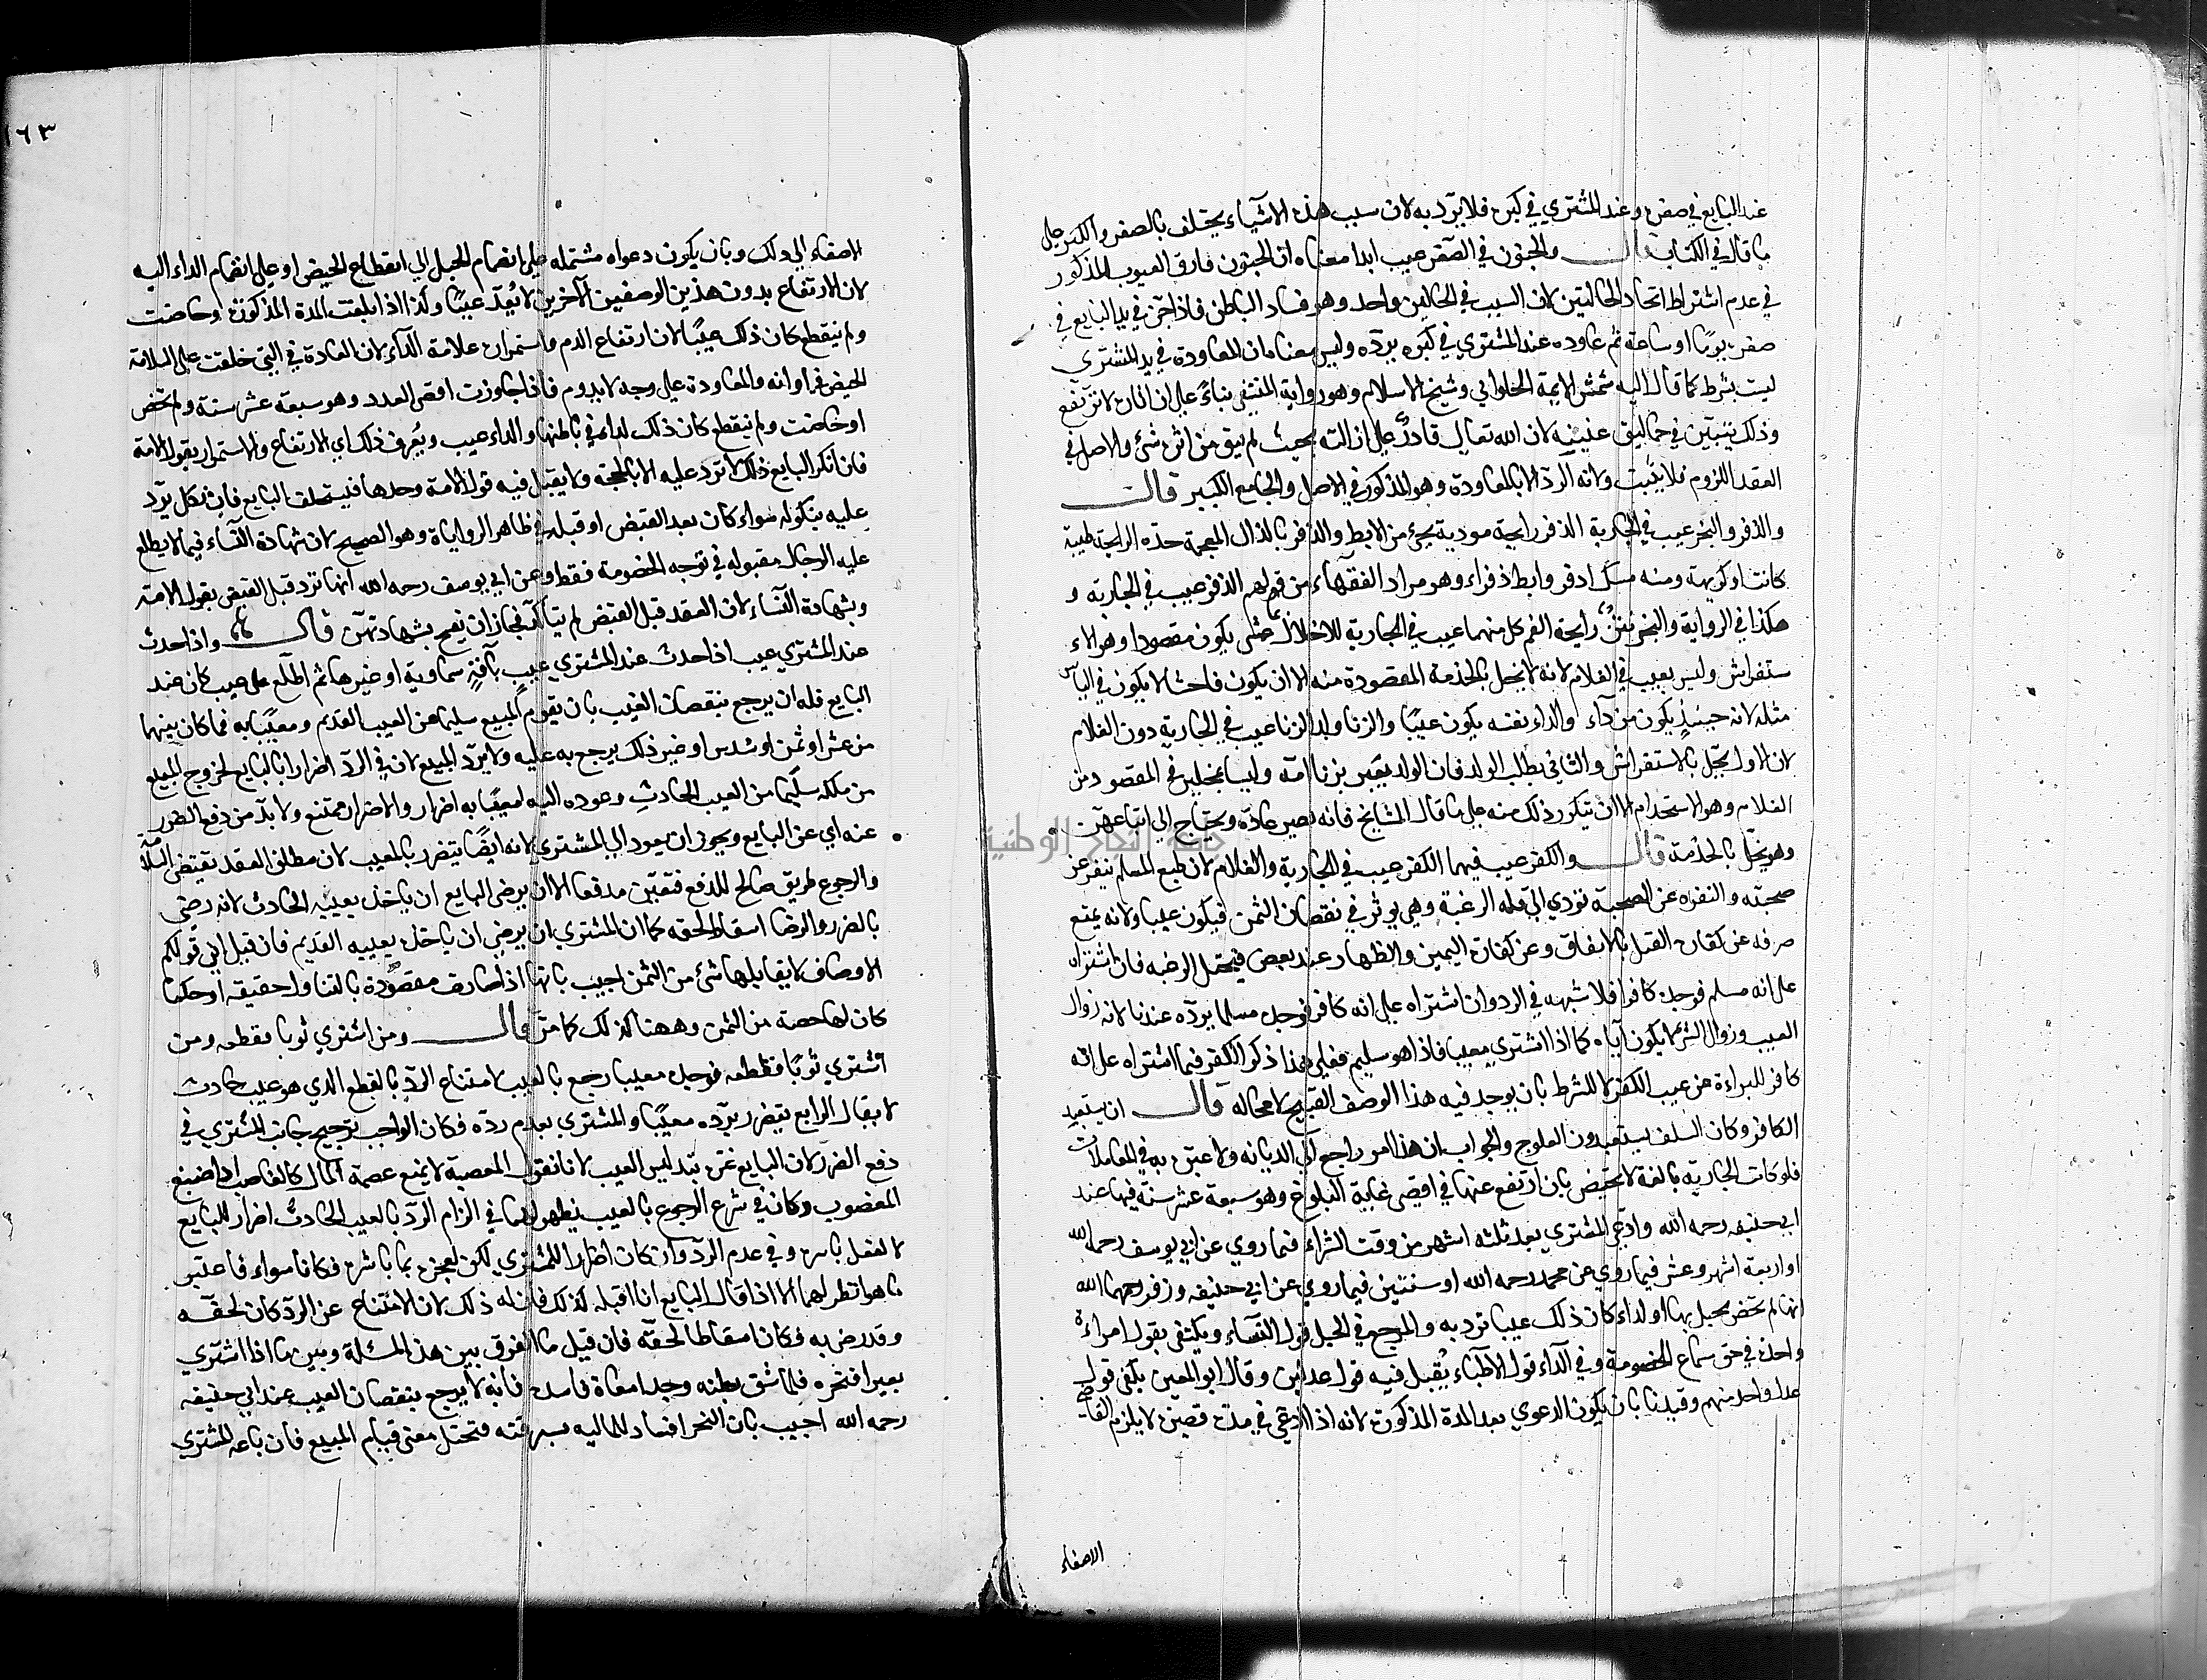 عند البايع في صغره وعند المشتري في كبره فلا يرد به لان سبب هذه الاشياء يختلف بالصغر والكبر على
ما قال في الكتاب قال والجنون في الصغر عيب ابدا معناه ان الجنون فارق العيوب المذكور
في عدم اشتراط اتحاد الحالتين لان السبب في الحالين واحد وهو فساد الباطن فاذا جن في يد البايع في
صغره يوما او ساعة ثم عاوده عند المشتري في كبره يرده وليس معناه ان المعاودة في يد المشتري
ليت بشرط كما قال اليه شمس الايمة الحلواني وشيخ الاسلام وهو رواية المنتقى بناءً على ان اثاره لا ترتفع
وذلك يتبين في حماليق عينيه لان الله تعالى قادر على ازالته بحيث لم يبق من اثره شئ والاصل في
العقد اللزوم فلا يثبت ولاية الرد الا بالمعاودة وهو المذكور في الاصل والجامع الكبير قال
والذفر والبخر عيب في الجارية الذفر رايحة موذية يجئ من الابط والذفر بالذال المعجمة حدة الرايحة طيبة
كانت او كريهة ومنه مسك ادفر وابط ذفراء وهو مراد الفقهاء من قولهم الذفر عيب في الجارية و
هكذا في الرواية والبخر نتن رايحة الفم كل منهما عيب في الجارية للاخلال عسى يكون مقصودا وهو الا
ستفراش وليس بعيب في الغلام لانه لا يخل بالخدمة المقصودة منه الا ان يكون فاحشا لا يكون في الناس
مثله لانه حينئذ يكون من داء والداء نفسه يكون عيبًا والزنا وولد الزنا عيب في الجارية دون الغلام
لان الاول يخل بالاستفراش والثاني بطلب الولد فان الولد يعير بزنا امه وليسا بمخلين في المقصود من
الغلام وهو الاستخدام الا ان يتكرر ذلك منه على ما قال المشايخ فانه يصير عادة ويحتاج الى اتباعهن
وهو يخل بالخدمة قال والكفر عيب فيهما الكفر عيب في الجارية والغلام لان طبع المسلم ينفر عن
صحبته والنفره عن الصحبة تودي الى قله الرغبة وهي يوثر في نقصان الثمن فيكون عيبا ولانه يمتنع
صرفه عن كفارة القتل بالاتفاق وعن كفارة اليمين والظهار عند بعض فيختل الرغبه فان اشتراه
على انه مسلم فوجده كافرا فلا شبهه في الرد وان اشتراه على انه كافر فوجده مسلما يرده عندنا لانه زوال
العيب وزوال الشئ لا يكون اياه كما اذا اشتري معيبا فاذا هو سليم فعلى هذا ذكر الكفر فيما اشتراه على انه
كافر للبراءة من عيب الكفر لا للشرط بان يوجد فيه هذا الوصف القبيح لا محاله قال ان يستعبد
الكافر وكان السلف يستعبدون العلوج والجواب ان هذا امر راجع الى الديانه ولا عبرة به في المعاملات
فلو كانت الجارية بالغة لا تحيض بان ارتفع عنها في اقصى غاية البلوغ وهو سبعة عشر سنة فيها عند
ابي حنيفه رحمه الله وادعى المشتري بعد ثلثه اشهر من وقت الشراء فيما روي عن ابي يوسف رحمه الله
او اربعة اشهر وعشر فيما روي عن محمد رحمه الله او سنتين فيما روي عن ابي حنيفه وزفر رحمهما الله
انها لم تحض بحبل بها او لداء كان ذلك عيبا ترد به والمرجع في الحبل قول النساء ويكتفى بقول امراءة
واحدة في حق سماع الخصومة وفي الداء قول الاطباء يقبل فيه قول عدلين وقال ابو المعين يكفى قول
عدل واحد منهم وقيدنا بان يكون الدعوي بعد المدة المذكورة لانه اذا ادعى في مدة قصيرة لا يلزم القاضي
الاصغاء
١٦٣
الاصغاء الى ذلك وبان يكون دعواه مشتمله على انضمام الحبل الى انقطاع الحيض او على انضمام الداء اليه
لان الارتفاع بدون هذين الوصفين الاخرين لا يُعد عيبًا ولذا اذا بلغت المدة المذكورة وحاضت
ولم ينقطع كان ذلك عيبًا لان ارتفاع الدم واستمراره علامة الداء لان العادة في التي خلقت على السلامة
الحيض في اوانه والمعاودة على وجه لا يدوم فاذا جاوزت اقصى العدد وهو سبعة عشر سنة ولم تحض
او حاضت ولم ينقطع كان ذلك لداء في باطنها والداء عيب ويُعرف ذلك اي الارتفاع والاستمرار بقول الامة
فان انكر البايع ذلك لا ترد عليه الا بالحجة ولا يقبل فيه قول الامة وحدها فيستحلف البايع فان نكل يرد
عليه بنكوله سواء كان بعد القبض او قبله في ظاهر الرواياة وهو الصحيح لان شهادة النساء فيما لا يطلع
عليه الرجال مقبوله في توجه الخصومة فقط وعن ابي يوسف رحمه الله انها ترد قبل القبض بقول الامة
وبشهادة النساء لان العقد قبل القبض لم يتاكد فجاز ان يفسخ بشهادتهن قال واذا حدث
عند المشتري عيب اذا حدث عند المشتري عيب بآفةٍ سماوية او غيرها ثم اطلع على عيب كان عند
البايع فله ان يرجع بنقصان العيب بان يقوم المبيع سليما عن العيب القديم ومعيبًا به فما كان بينهما
من عشر او ثمن او سُدس او غير ذلك يرجع به عليه ولا يرد المبيع لان في الرد اضرارا بالبايع لخروج المبيع
من ملكه سليما من العيب الحادث وعوده اليه معيبًا به اضرار والاضرار ممتنع ولا بد من دفع الضرر
عنه اي عن البايع ويجوز ان يعود الى المشتري لانه ايضًا يتضرر بالمعيب لان مطلق العقد يقتضي السلامة
والرجوع طريق صالح للدفع فتعين مدفعا الا ان يرضى البايع ان ياخذه بعيبه الحادث لانه رضي
بالضرر والرضا اسقاط لحقه كما ان المشتري ان يرضى ان ياخذه بعيبه القديم فان قيل اين قولكم
الاوصاف لا يقابلها شئ من الثمن اجيب بانها اذا صارت مقصودة بالتناول حقيقه او حكما
كان لها حصة من الثمن وههنا كذلك كما مر قال ومن اشتري ثوبا فقطعه ومن
اشتري ثوبًا فقطعه فوجده معيبا رجع بالعيب لامتناع الرد بالقطع الذي هو عيب حادث
لا يقال البايع يتضرر برده معيبًا والمشتري بعدم رده فكان الواجب ترجيح جانب المشتري في
دفع الضرر لان البايع غره بتدليس العيب لانا نقول المعصية لا يمنع عصمة المال كالغاصب اذا صبغ
المغصوب وكان في شرع الرجوع بالعيب نظر لهما في الزام الرد بالعيب الحادث اضرار للبايع
لا لفعل باشره وفي عدم الرد وان كان اضرارا للمشتري لكن لعجزه بما باشره فكانا سواء فاعتبر
ما هو انظر لهما الا اذا قال البايع انا اقبله كذلك فان له ذلك لان الامتناع عن الرد كان لحقه
وقد رضي به فكان اسقاطا لحقه فان قيل ما الفرق بين هذه المسئلة وبين ما اذا اشتري
بعيرا فنحره فلما شق بطنه وجد امعاءه فاسدة فانه لا يرجع بنقصان العيب عند ابي حنيفه
رحمه الله اجيب بان النحر افساد للماليه فتختل معنى قيام المبيع فان باعه المشتري
جامعة النجاح الوطنية